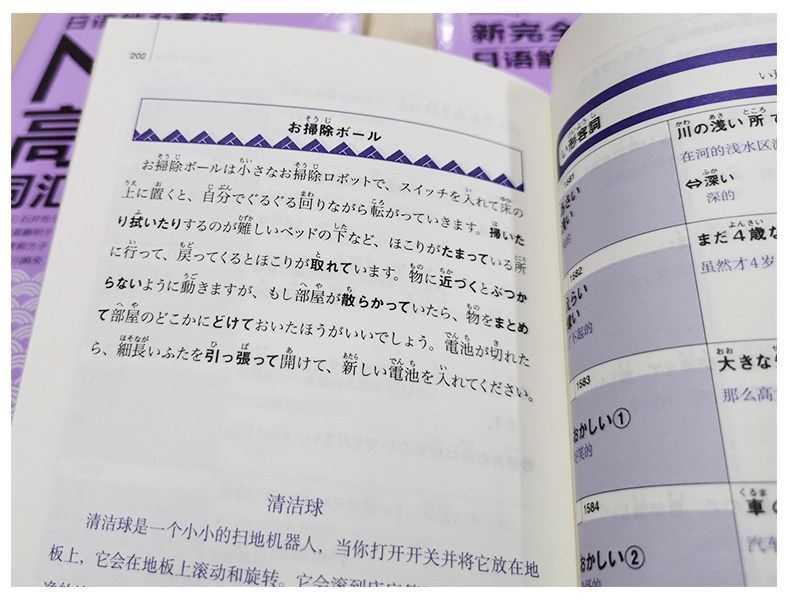 日语能力考试
N
高
词汇
新完全
日语能
202
お掃除ボール
お掃除ボールは小さなお掃除ロボットで、スイッチを入れて床の
上に置くと、自分でぐるぐる回りながら転がっていきます。掃いた
り拭いたりするのが難しいベッドの下など、ほこりがたまっている所
に行って、戻ってくるとほこりが取れています。物に近づくとぶつか
らないように動きますが、もし部屋が散らかっていたら、物をまとめ
て部屋のどこかにどけておいたほうがいいでしょう。電池が切れた
ら、細長いふたを引っ張って開けて、新しい電池を入れてください。
清洁球
清洁球是一个小小的扫地机器人，当你打开开关并将它放在地
板上，它会在地板上滚动和旋转。它会滚到床底等
い形容詞
1581
川の浅い所で
在河的浅水区
⇔深い
深的
1582
まだ４歳な
虽然才4岁
1583
おかしい①
大きな
那么高
1584
おかしい②
車の
汽车